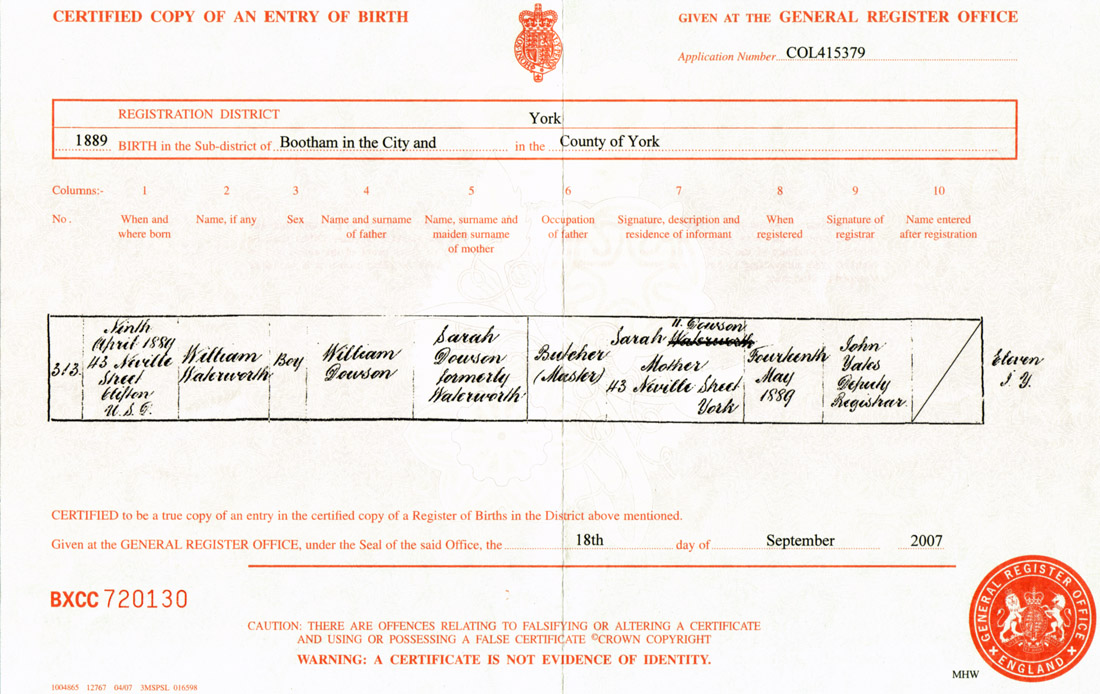 CERTIFIED COPY OF AN ENTRY OF BIRTH
GIVEN AT THE GENERAL REGISTER OFFICE
Application Number COL415379
REGISTRATION DISTRICT York
1889 BIRTH in the Sub-district of Bootham in the City and in the County of York
Columns:- 1 2 3 4 5 6 7 8 9 10
No. When and where born
Name, if any
Sex
Name and surname of father
Name, surname and maiden surname of mother
Occupation of father
Signature, description and residence of informant
When registered
Signature of registrar
Name entered after registration
313
Ninth
April 1889
43 Neville
Street
Clifton
U.S.D.
William
Waterworth
Boy
William
Dowson
Sarah
Dowson
formerly
Waterworth
Butcher
(Master)
H. Dowson
Sarah Waterworth
Mother
43 Neville Street
York
Fourteenth
May
1889
John
Yates
Deputy
Registrar.
Eleven
J. Y.
CERTIFIED to be a true copy of an entry in the certified copy of a Register of Births in the District above mentioned.
Given at the GENERAL REGISTER OFFICE, under the Seal of the said Office, the 18th day of September 2007
BXCC 720130
CAUTION: THERE ARE OFFENCES RELATING TO FALSIFYING OR ALTERING A CERTIFICATE
AND USING OR POSSESSING A FALSE CERTIFICATE ©CROWN COPYRIGHT
WARNING: A CERTIFICATE IS NOT EVIDENCE OF IDENTITY.
GENERAL REGISTER OFFICE
ENGLAND
MHW
1004865 12767 04/07 3MSPSL 016598